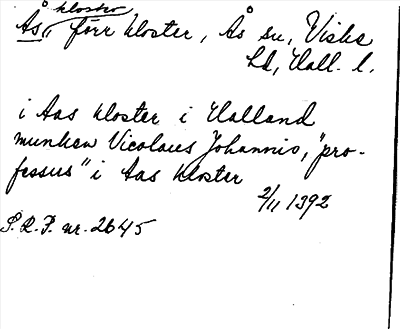 kloster
Ås, förr kloster, Ås sn, Viske
hd, Hall. l.
i Aas kloster i Halland
munken Nicolaus Johannis, "pro-
fessus" i Aas kloster
2/11 1392
S.R.P. nr. 2645